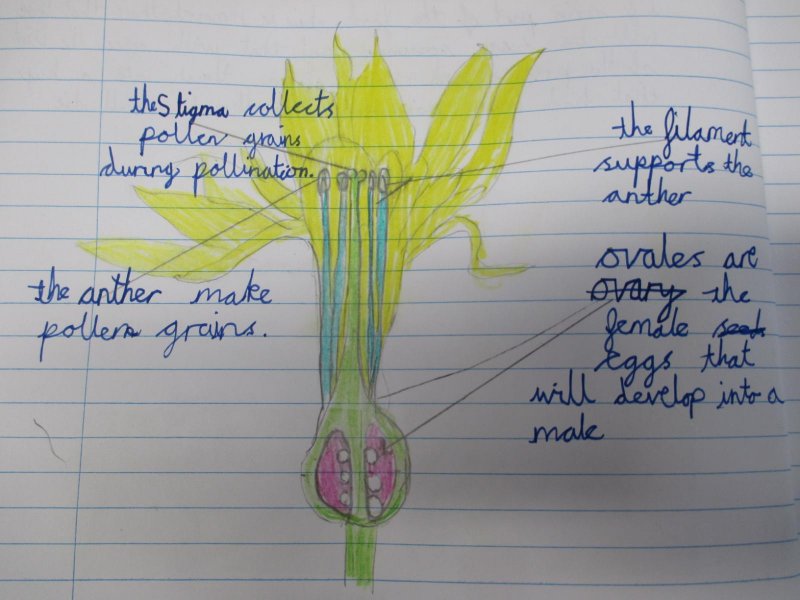 the Stigma collects
pollen grains
during pollination.
the anther make
pollen grains.
the filament
supports the
anther
ovales are
ovary the
female seeds
eggs that
will develop into a
male